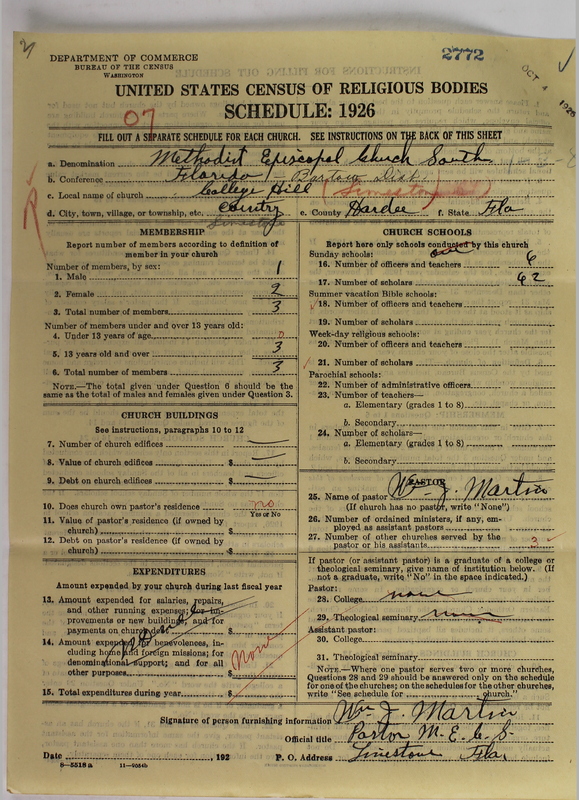 DEPARTMENT OF COMMERCE
BUREAU OF THE CENSUS
WASHINGTON
2772
OCT 4 1926
UNITED STATES CENSUS OF RELIGIOUS BODIES
SCHEDULE: 1926
07
FILL OUT A SEPARATE SCHEDULE FOR EACH CHURCH. SEE INSTRUCTIONS ON THE BACK OF THIS SHEET
a. Denomination Methodist Episcopal Church South
b. Conference Florida / Bartow Dist.
c. Local name of church College Hill (Limestone)
d. City, town, village, or township, etc. Country Limestone e. County Hardee f. State Fla
MEMBERSHIP
Report number of members according to definition of member in your church
Number of members, by sex:
1. Male 1
2. Female 2
3. Total number of members 3
Number of members under and over 13 years old:
4. Under 13 years of age 0
5. 13 years old and over 3
6. Total number of members 3
NOTE.—The total given under Question 6 should be the same as the total of males and females given under Question 3.
CHURCH BUILDINGS
See instructions, paragraphs 10 to 12
7. Number of church edifices —
8. Value of church edifices $ —
9. Debt on church edifices $ —
10. Does church own pastor's residence no
Yes or No
11. Value of pastor's residence (if owned by church) $
12. Debt on pastor's residence (if owned by church) $
EXPENDITURES
Amount expended by your church during last fiscal year
13. Amount expended for salaries, repairs, and other running expenses; for improvements or new building; and for payments on church debt $
14. Amount expended for benevolences, including home and foreign missions; for denominational support; and for all other purposes $
15. Total expenditures during year $
None
CHURCH SCHOOLS
Report here only schools conducted by this church
Sunday schools:
16. Number of officers and teachers 6
17. Number of scholars 62
Summer vacation Bible schools:
18. Number of officers and teachers
19. Number of scholars
Week-day religious schools:
20. Number of officers and teachers
21. Number of scholars
Parochial schools:
22. Number of administrative officers
23. Number of teachers—
a. Elementary (grades 1 to 8)
b. Secondary
24. Number of scholars—
a. Elementary (grades 1 to 8)
b. Secondary
PASTOR
25. Name of pastor Wm J. Martin
(If church has no pastor, write "None")
26. Number of ordained ministers, if any, employed as assistant pastors
27. Number of other churches served by the pastor or his assistants 3
If pastor (or assistant pastor) is a graduate of a college or theological seminary, give name of institution below. (If not a graduate, write "No" in the space indicated.)
Pastor:
28. College none
29. Theological seminary none
Assistant pastor:
30. College
31. Theological seminary
NOTE.—Where one pastor serves two or more churches, Questions 28 and 29 should be answered only on the schedule for one of the churches; on the schedules for the other churches, write "See schedule for church."
Signature of person furnishing information Wm J. Martin
Official title Pastor M. E. C. S.
Date , 192 P. O. Address Limestone Fla.
8—5518a 11—9684b